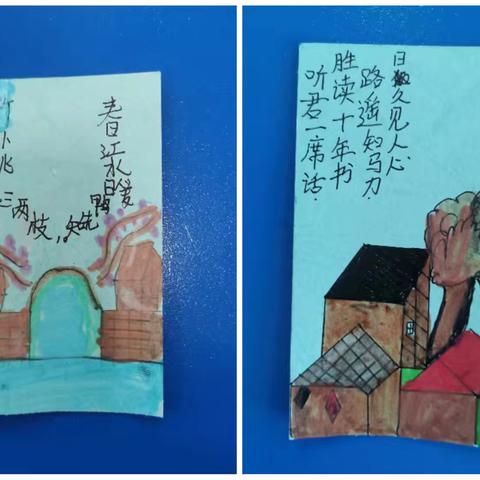 三两枝，
春江水暖鸭先知
听君一席话.
胜读十年书
路遥知马力.
日久见人心